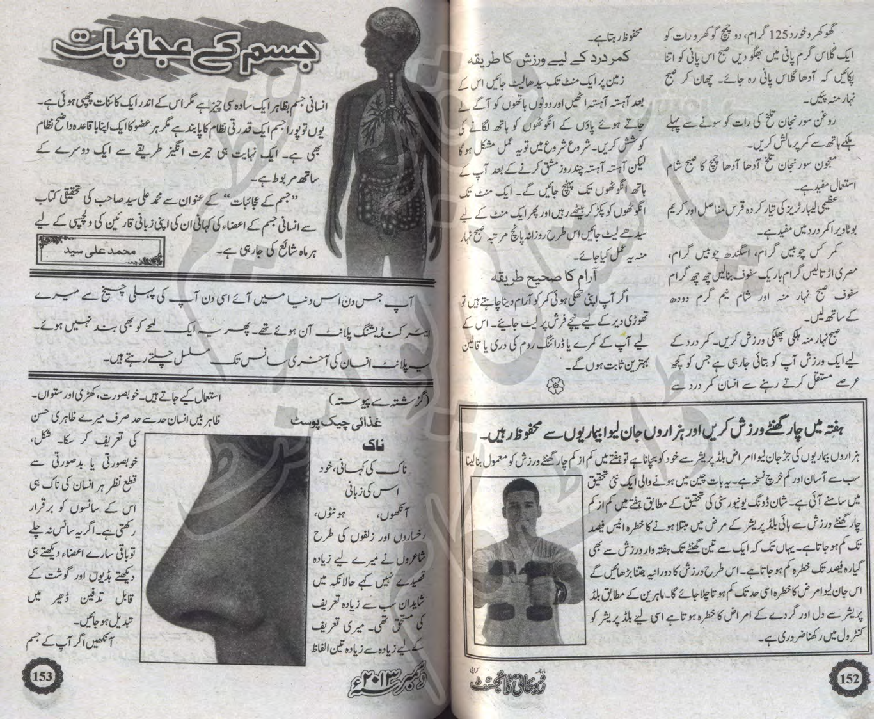 گھوکھرو خورد 125 گرام، دو چمچ گوکھرو رات کو
ایک گلاس گرم پانی میں بھگو دیں صبح اس پانی کو اتنا
پکائیں کہ آدھا گلاس پانی رہ جائے۔ چھان کر صبح
نہار منہ پئیں۔
روغن سورنجان تلخ کی رات کو سونے سے پہلے
ہلکے ہاتھ سے کمر پر مالش کریں۔
معجون سورنجان تلخ آدھا آدھا چمچ کا صبح شام
استعمال مفید ہے۔
عظیمی لیبارٹریز کی تیار کردہ قرص مفاصل اور کریم
بوٹاڈیر اکمر درد میں مفید ہے۔
کمر کس چوبیس گرام، اسگندھ چوبیس گرام،
مصری اڑتالیس گرام باریک سفوف بنالیں چھ چھ گرام
سفوف صبح نہار منہ اور شام نیم گرم دودھ
کے ساتھ لیں۔
صبح نہار منہ ہلکی پھلکی ورزش کریں۔ کمر درد کے
لیے ایک ورزش آپ کو بتائی جارہی ہے جس کو کچھ
عرصے مستقل کرتے رہنے سے انسان کمر درد سے
محفوظ رہتا ہے۔
کمر درد کے لیے ورزش کا طریقہ
زمین پر ایک منٹ تک سیدھا لیٹ جائیں اس کے
بعد آہستہ آہستہ اٹھیں اور دونوں ہاتھوں کو آگے لے
جاتے ہوئے پاؤں کے انگوٹھوں کو ہاتھ لگانے کی
کوشش کریں۔ شروع شروع میں تو یہ عمل مشکل ہوگا
لیکن آہستہ آہستہ چند روز مشق کرنے کے بعد آپ کے
ہاتھ انگوٹھوں تک پہنچ جائیں گے۔ ایک منٹ تک
انگوٹھوں کو پکڑ کر بیٹھے رہیں اور پھر ایک منٹ کے لیے
سیدھے لیٹ جائیں اس طرح روزانہ پانچ مرتبہ صبح نہار
منہ یہ عمل کیا جائے۔
آرام کا صحیح طریقہ
اگر آپ اپنی تھکی ہوئی کمر کو آرام دینا چاہتے ہیں تو
تھوڑی دیر کے لیے نیچے فرش پر لیٹ جایئے۔ اس کے
لیے آپ کے کمرے یا ڈرائنگ روم کی دری یا قالین
بہترین ثابت ہوں گے۔
ہفتہ میں چار گھنٹے ورزش کریں اور ہزاروں جان لیوا بیماریوں سے محفوظ رہیں۔
ہزاروں بیماریوں کی جڑ جان لیوا مراض بلڈ پریشر سے خود کو بچانا ہے تو ہفتے میں کم از کم چار گھنٹے ورزش کو معمول بنالینا
سب سے آسان اور کم خرچ نسخہ ہے۔ یہ بات چین میں ہونے والی ایک نئی تحقیق
میں سامنے آئی ہے۔ شان ڈونگ یونیورسٹی کی تحقیق کے مطابق ہفتے میں کم از کم
چار گھنٹے ورزش سے ہائی بلڈ پریشر کے مرض میں مبتلا ہونے کا خطرہ انیس فیصد
تک کم ہوجاتا ہے۔ یہاں تک کہ ایک سے تین گھنٹے تک ہفتہ وار ورزش سے بھی
گیارہ فیصد تک خطرہ کم ہوجاتا ہے۔ اس طرح ورزش کا دورانیہ جتنا بڑھائیں گے
اس جان لیوا مرض کا خطرہ اسی حد تک کم ہوتا چلا جائے گا۔ ماہرین کے مطابق بلڈ
پریشر سے دل اور گردے کے امراض کا خطرہ ہوتا ہے اسی لیے بلڈ پریشر کو
کنٹرول میں رکھنا ضروری ہے۔
روحانی ڈائجسٹ
152
جسم کے عجائبات
انسانی جسم بظاہر ایک سادہ سی چیز ہے مگر اس کے اندر ایک کائنات چھپی ہوئی ہے۔
یوں تو پورا جسم ایک قدرتی نظام کا پابند ہے مگر ہر عضو کا ایک اپنا باقاعدہ واضح نظام
بھی ہے۔ ایک نہایت ہی حیرت انگیز طریقے سے ایک دوسرے کے
ساتھ مربوط ہے۔
”جسم کے عجائبات“ کے عنوان سے محمد علی سید صاحب کی تحقیقی کتاب
سے انسانی جسم کے اعضاء کی کہانی ان کی اپنی زبانی قارئین کی دلچسپی کے لیے
ہر ماہ شائع کی جارہی ہے۔
محمد علی سید
آپ جس دن اس دنیا میں آئے اسی دن آپ کی پہلی چیخ سے میرے
ایئر کنڈیشننگ پلانٹ آن ہوئے تھے۔ پھر یہ ایک لمحے کو بھی بند نہیں ہوئے۔
یہ پلانٹ انسان کی آخری سانس تک مسلسل چلتے رہتے ہیں۔
(گزشتہ سے پیوستہ)
غذائی چیک پوسٹ
ناک
ناک کی کہانی، خود
اس کی زبانی
آنکھوں، ہونٹوں،
رخساروں اور زلفوں کی طرح
شاعروں نے میرے لیے زیادہ
قصیدے نہیں کہے حالانکہ میں
شاید ان سب سے زیادہ تعریف
کی مستحق تھی۔ میری تعریف
کے لیے زیادہ سے زیادہ تین الفاظ
استعمال کیے جاتے ہیں۔ خوبصورت، کھڑی اور ستواں۔
ظاہر بیں انسان حد سے حد صرف میرے ظاہری حسن
کی تعریف کر سکا۔ شکل،
خوبصورتی یا بدصورتی سے
قطع نظر ہر انسان کی ناک ہی
اس کے سانسوں کو برقرار
رکھتی ہے۔ اگر یہ سانس نہ چلے
تو باقی سارے اعضاء دیکھتے ہی
دیکھتے ہڈیوں اور گوشت کے
قابل تدفین ڈھیر میں
تبدیل ہو جائیں۔
آنکھیں اگر آپ کے جسم
دسمبر ۲۰۱۳ء
153